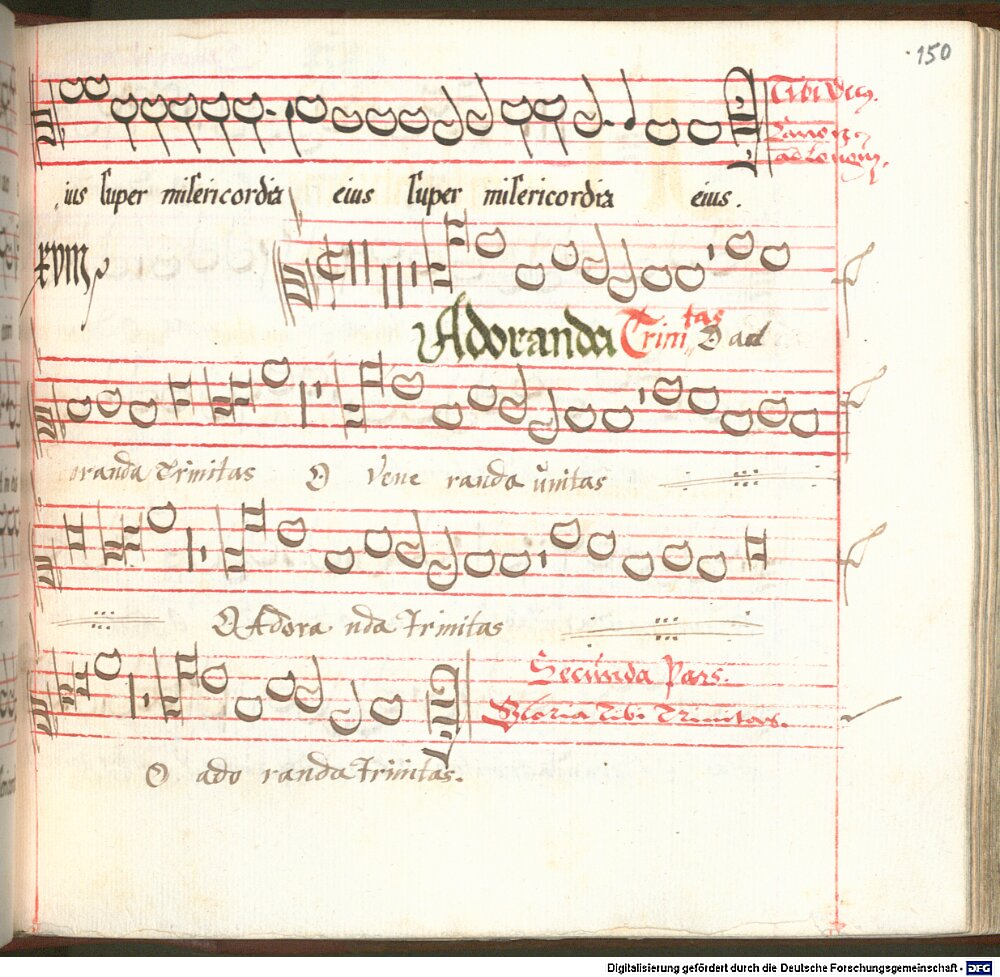 150
ius super misericordia eius super misericordia eius.
Tibi Decet
XVIII
Adoranda Trinitas O ad
oranda Trinitas O Vene randa unitas
O Adora nda trinitas
Secunda Pars.
Gloria Tibi Trinitas.
O ado randa trinitas.
Digitalisierung gefördert durch die Deutsche Forschungsgemeinschaft - DFG